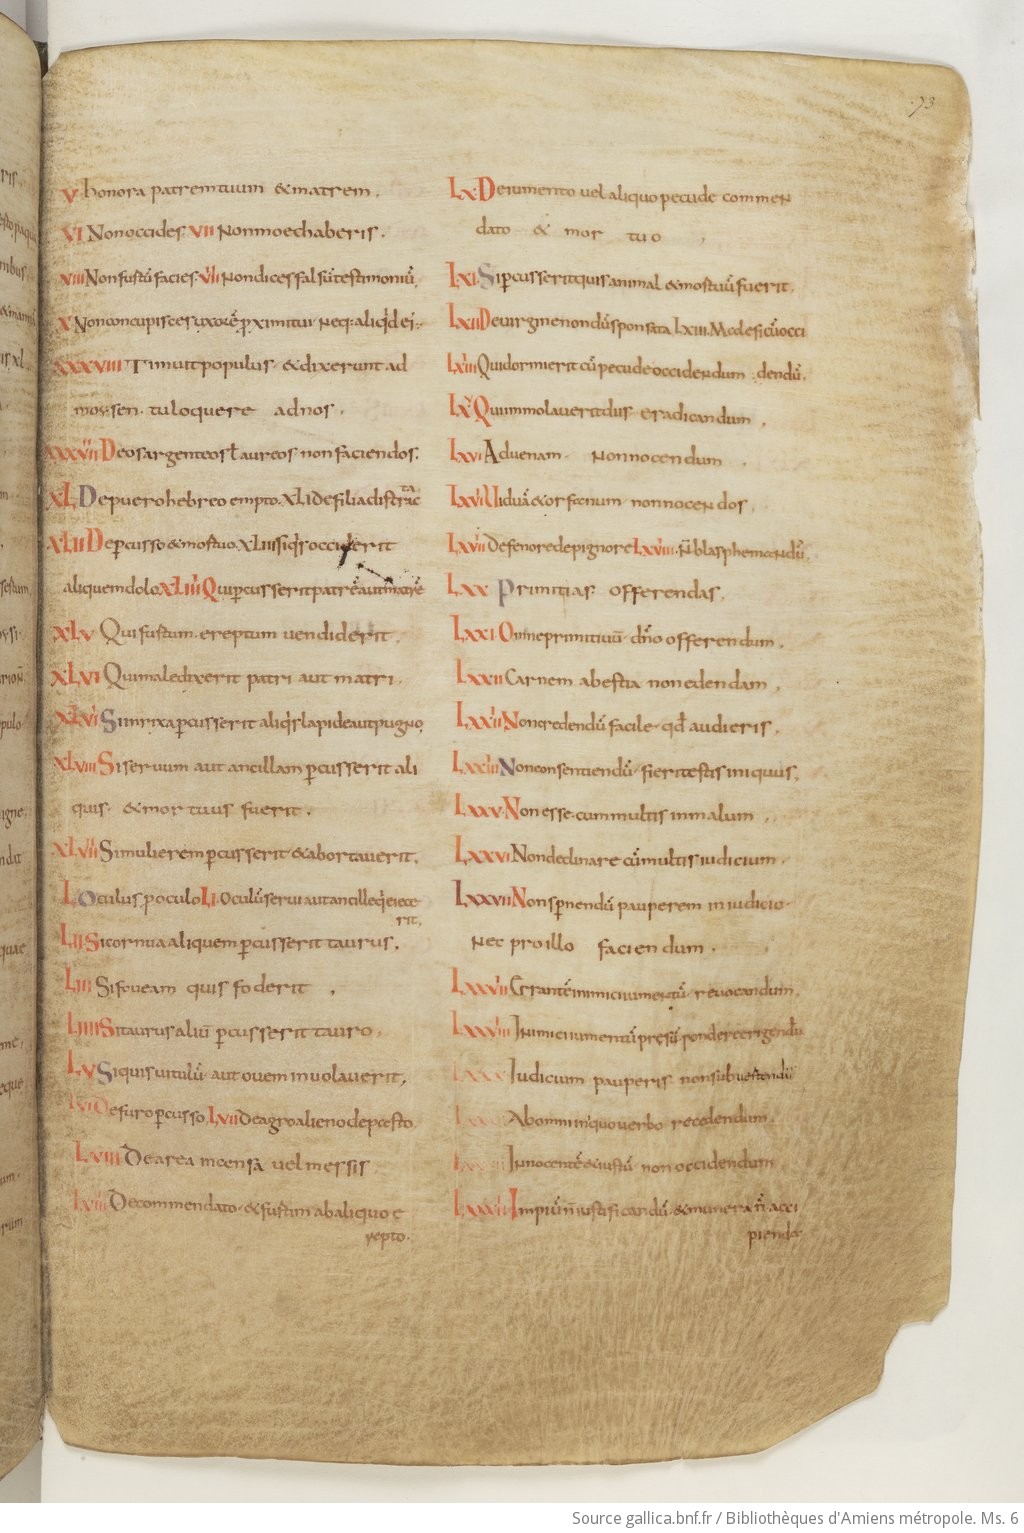 73
V honora patrem tuum & matrem.
VI Non occides VII Non moechaberis.
VIII Non furtũ facies VIIII Non dices falsũ testimoniũ.
X Non concupisces uxorẽ p̱ximi tui neq; aliq̇d ei;
XXXVIII Timuit populus & dixerunt ad
mossen. tu loquere ad nos.
XXXVIIII Deos argenteos ł aureos non faciendos.
XL De puero hebreo empto. XLI De filia distracta
XLII De p̱cusso & mortuo. XLIII si q̇s occiderit
aliquem dolo XLIIII Qui p̱cusserit patrẽ aut matrẽ
XLV Qui furtum ereptum uendiderit.
XLVI Qui maledixerit patri aut matri.
XLVII Si in rixa p̱cusserit aliq̇s lapide aut pugno
XLVIII Si seruum aut ancillam p̱cusserit ali
quis. & mortuus fuerit.
XLVIIII Si mulierem p̱cusserit & abortauerit.
L Oculus p̱ oculo LI. Oculũ serui aut ancille q̇ eiece
rit.
LII Si cornu aliquem p̱cusserit taurus.
LIII Si foueam quis foderit.
LIIII Si taurus aliũ p̱cusserit tauro.
LV Si quis uitulũ aut ouem inuolauerit.
LVI De fure p̱cusso. LVII De agro alieno depasto
LVIII De area incensa uel messis
LVIIII De commendato. & furtum ab aliquo e
repto.
LX De iumento uel aliquo pecude commen
dato & mortuo
LXI. Si p̱cusserit quis animal & mortuũ fuerit.
LXII De uirgine non dũ sponsata LXIII. Maleficũ occi
LXIIII Qui dormierit cũ pecude occidendum. dendũ.
LXV Qui immolauerit diis eradicandum.
LXVI Aduenam non nocendum.
LXVII Uiduã & orfanum non nocendos.
LXVIII De fenore de pignore LXVIIII. N̄ blasphemandũ.
LXX Primitias offerendas.
LXXI. Omne primitiuũ dño offerendum.
LXXII Carnem a bestia non edendam.
LXXIII Non credendũ facile qd audieris.
LXXIIII Non consentiendũ fieri testis iniquus.
LXXV. Non esse cum multis in malum.
LXXVI Non declinare cũ multis iudicium.
LXXVII Non sp̱nendũ pauperem in iudicio.
Nec pro illo faciendum.
LXXVIII Errantẽ inimici iumentũ reuocandum.
LXXVIIII Inimici iumentũ pressũ pondere erigendũ
LXXX Iudicium pauperis non subuertendũ
Ab omni iniquo uerbo recedendum.
Innocentẽ & iustũ non occidendum
LXXXIII Impiũ n̄ iustificandũ. & munera n̄ acci
pienda
Source gallica.bnf.fr / Bibliothèques d'Amiens métropole. Ms. 6